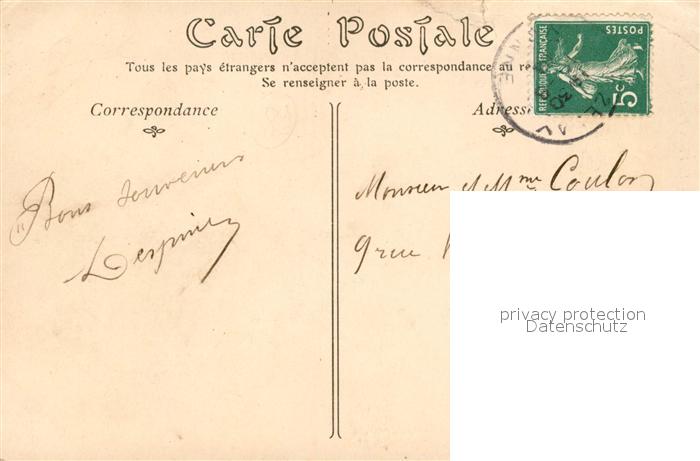 Carte Postale
Tous les pays étrangers n'acceptent pas la correspondance au re
Se renseigner à la poste.
Correspondance
Adresse
Bons souvenirs
Monsieur et Mme Coulon
9 rue
REPUBLIQUE FRANÇAISE
POSTES
5c
privacy protection
Datenschutz